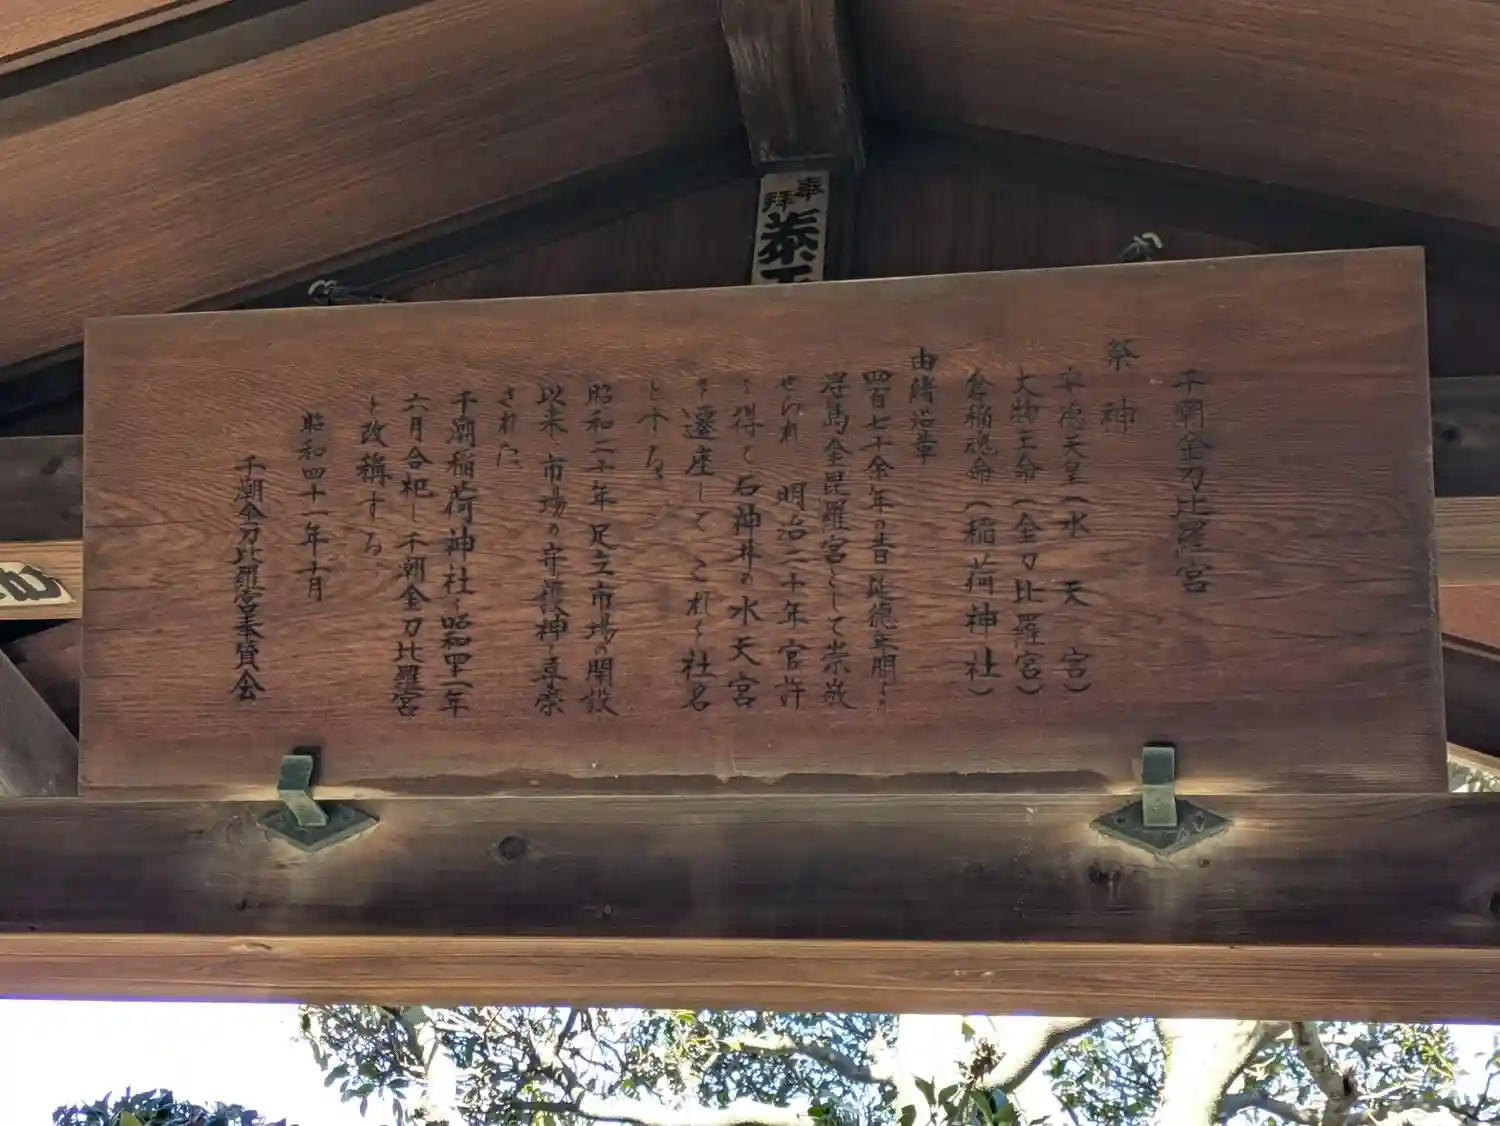 千潮金刀比羅宮
祭神
安徳天皇(水天宮)
大物主命(金刀比羅宮)
倉稲魂命(稲荷神社)
由緒沿革
四百七十余年の昔延徳年間より
浮島金毘羅宮として崇敬
せられ 明治二十年官許
を得て石神井の水天宮
を遷座してこれを社名
とする、
昭和二十年足立市場の開設
以来、市場の守護神と尊崇
された、
千潮稲荷神社を昭和四一年
六月合祀し千潮金刀比羅宮
と改稱する、
昭和四十一年十月
千潮金刀比羅宮奉賛会
奉拝